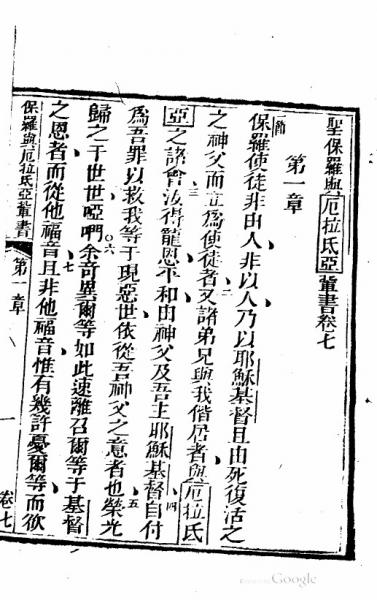 聖保羅與厄拉氏亞輩書卷七
第一章
節
保羅使徒非由人非以人乃以耶穌基督且由死復活之
之神父而立為使徒者二又諸弟兄與我偕居者與厄拉氏
亞之諸會三汝得寵恩平和由神父及吾主耶穌基督四自付
為吾罪以救我等于現惡世依從吾神父之意者也五榮光
歸之于世世啞們六余奇異爾等如此速離召爾等于基督
之恩者而從他福音七且非他福音惟有幾許憂爾等而欲
保羅與厄拉氏亞輩書
第一章
卷七
Google